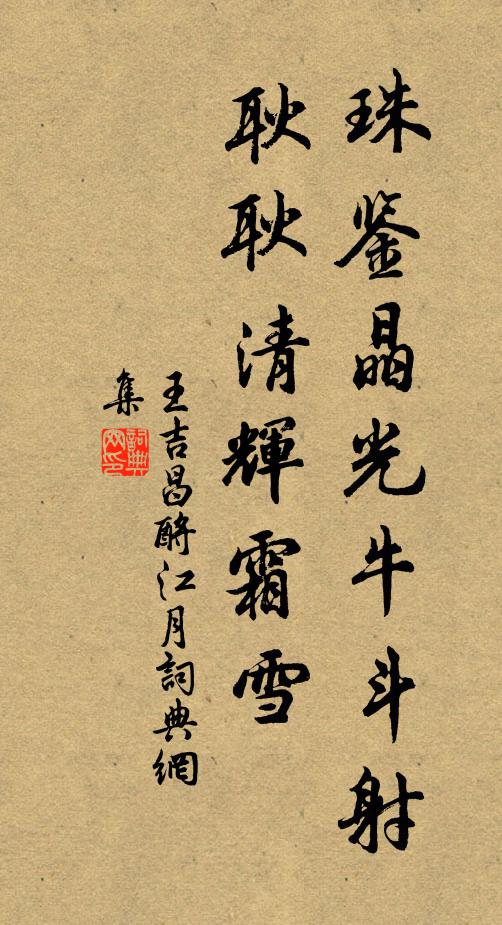 珠鉴晶光牛斗射
耿耿清輝霜雪
王吉昌酹江月詞典網
集
詞典網印